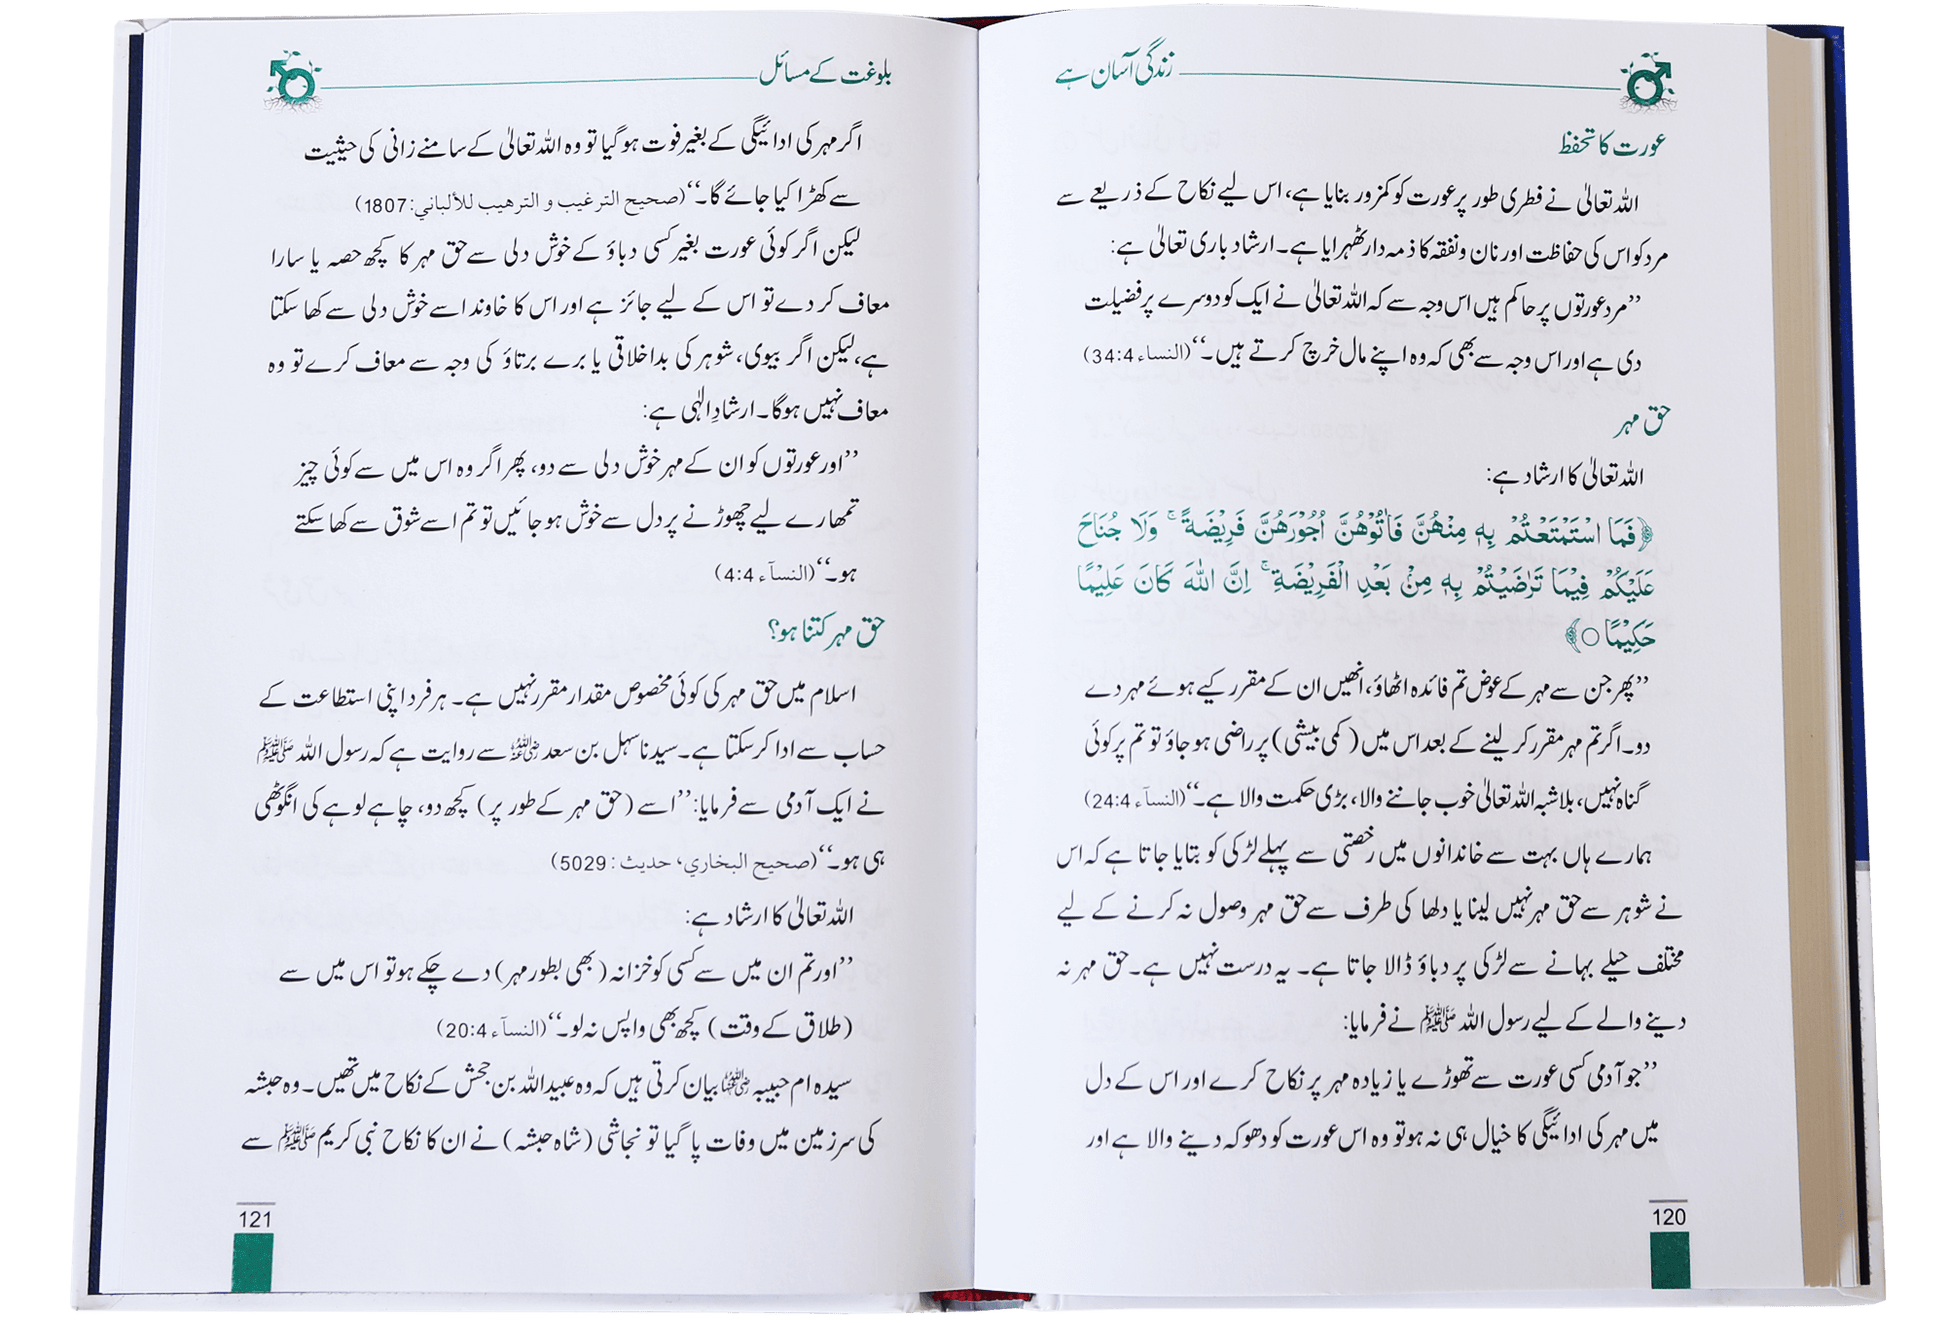 زندگی آسان ہے
عورت کا تحفظ
اللہ تعالیٰ نے فطری طور پر عورت کو کمزور بنایا ہے، اس لیے نکاح کے ذریعے سے
مرد کو اس کی حفاظت اور نان و نفقہ کا ذمہ دار ٹھہرایا ہے۔ ارشاد باری تعالیٰ ہے:
’’مرد عورتوں پر حاکم ہیں اس وجہ سے کہ اللہ تعالیٰ نے ایک کو دوسرے پر فضیلت
دی ہے اور اس وجہ سے بھی کہ وہ اپنے مال خرچ کرتے ہیں۔‘‘ (النساء 34:4)
حق مہر
اللہ تعالیٰ کا ارشاد ہے:
﴿فَمَا اسْتَمْتَعْتُمْ بِهٖ مِنْهُنَّ فَاٰتُوْهُنَّ اُجُوْرَهُنَّ فَرِيْضَةً ۚ وَلَا جُنَاحَ
عَلَيْكُمْ فِيْمَا تَرٰضَيْتُمْ بِهٖ مِنْۢ بَعْدِ الْفَرِيْضَةِ ۚ اِنَّ اللّٰهَ كَانَ عَلِيْمًا
حَكِيْمًا ○﴾
’’پھر جن سے مہر کے عوض تم فائدہ اٹھاؤ، انھیں ان کے مقرر کیے ہوئے مہر دے
دو۔ اگر تم مہر مقرر کر لینے کے بعد اس میں (کمی بیشی) پر راضی ہو جاؤ تو تم پر کوئی
گناہ نہیں، بلاشبہ اللہ تعالیٰ خوب جاننے والا، بڑی حکمت والا ہے۔‘‘ (النسآء 24:4)
ہمارے ہاں بہت سے خاندانوں میں رخصتی سے پہلے لڑکی کو بتایا جاتا ہے کہ اس
نے شوہر سے حق مہر نہیں لینا یا دلھا کی طرف سے حق مہر وصول نہ کرنے کے لیے
مختلف حیلے بہانے سے لڑکی پر دباؤ ڈالا جاتا ہے۔ یہ درست نہیں ہے۔ حق مہر نہ
دینے والے کے لیے رسول اللہ ﷺ نے فرمایا:
’’جو آدمی کسی عورت سے تھوڑے یا زیادہ مہر پر نکاح کرے اور اس کے دل
میں مہر کی ادائیگی کا خیال ہی نہ ہو تو وہ اس عورت کو دھوکہ دینے والا ہے اور
120
بلوغت کے مسائل
اگر مہر کی ادائیگی کے بغیر فوت ہو گیا تو وہ اللہ تعالیٰ کے سامنے زانی کی حیثیت
سے کھڑا کیا جائے گا۔‘‘ (صحيح الترغيب و الترهيب للألباني: 1807)
لیکن اگر کوئی عورت بغیر کسی دباؤ کے خوش دلی سے حق مہر کا کچھ حصہ یا سارا
معاف کر دے تو اس کے لیے جائز ہے اور اس کا خاوند اسے خوش دلی سے کھا سکتا
ہے، لیکن اگر بیوی، شوہر کی بداخلاقی یا برے برتاؤ کی وجہ سے معاف کرے تو وہ
معاف نہیں ہوگا۔ ارشادِ الٰہی ہے:
’’اور عورتوں کو ان کے مہر خوش دلی سے دو، پھر اگر وہ اس میں سے کوئی چیز
تمھارے لیے چھوڑنے پر دل سے خوش ہو جائیں تو تم اسے شوق سے کھا سکتے
ہو۔‘‘ (النسآء 4:4)
حق مہر کتنا ہو؟
اسلام میں حق مہر کی کوئی مخصوص مقدار مقرر نہیں ہے۔ ہر فرد اپنی استطاعت کے
حساب سے ادا کر سکتا ہے۔ سیدنا سہل بن سعد رضی اللہ عنہ سے روایت ہے کہ رسول اللہ ﷺ
نے ایک آدمی سے فرمایا: ’’اسے (حق مہر کے طور پر) کچھ دو، چاہے لوہے کی انگوٹھی
ہی ہو۔‘‘ (صحيح البخاري، حديث: 5029)
اللہ تعالیٰ کا ارشاد ہے:
’’اور تم ان میں سے کسی کو خزانہ (بھی بطور مہر) دے چکے ہو تو اس میں سے
(طلاق کے وقت) کچھ بھی واپس نہ لو۔‘‘ (النسآء 20:4)
سیدہ ام حبیبہ رضی اللہ عنہا بیان کرتی ہیں کہ وہ عبید اللہ بن جحش کے نکاح میں تھیں۔ وہ حبشہ
کی سرزمین میں وفات پا گیا تو نجاشی (شاہ حبشہ) نے ان کا نکاح نبی کریم ﷺ سے
121